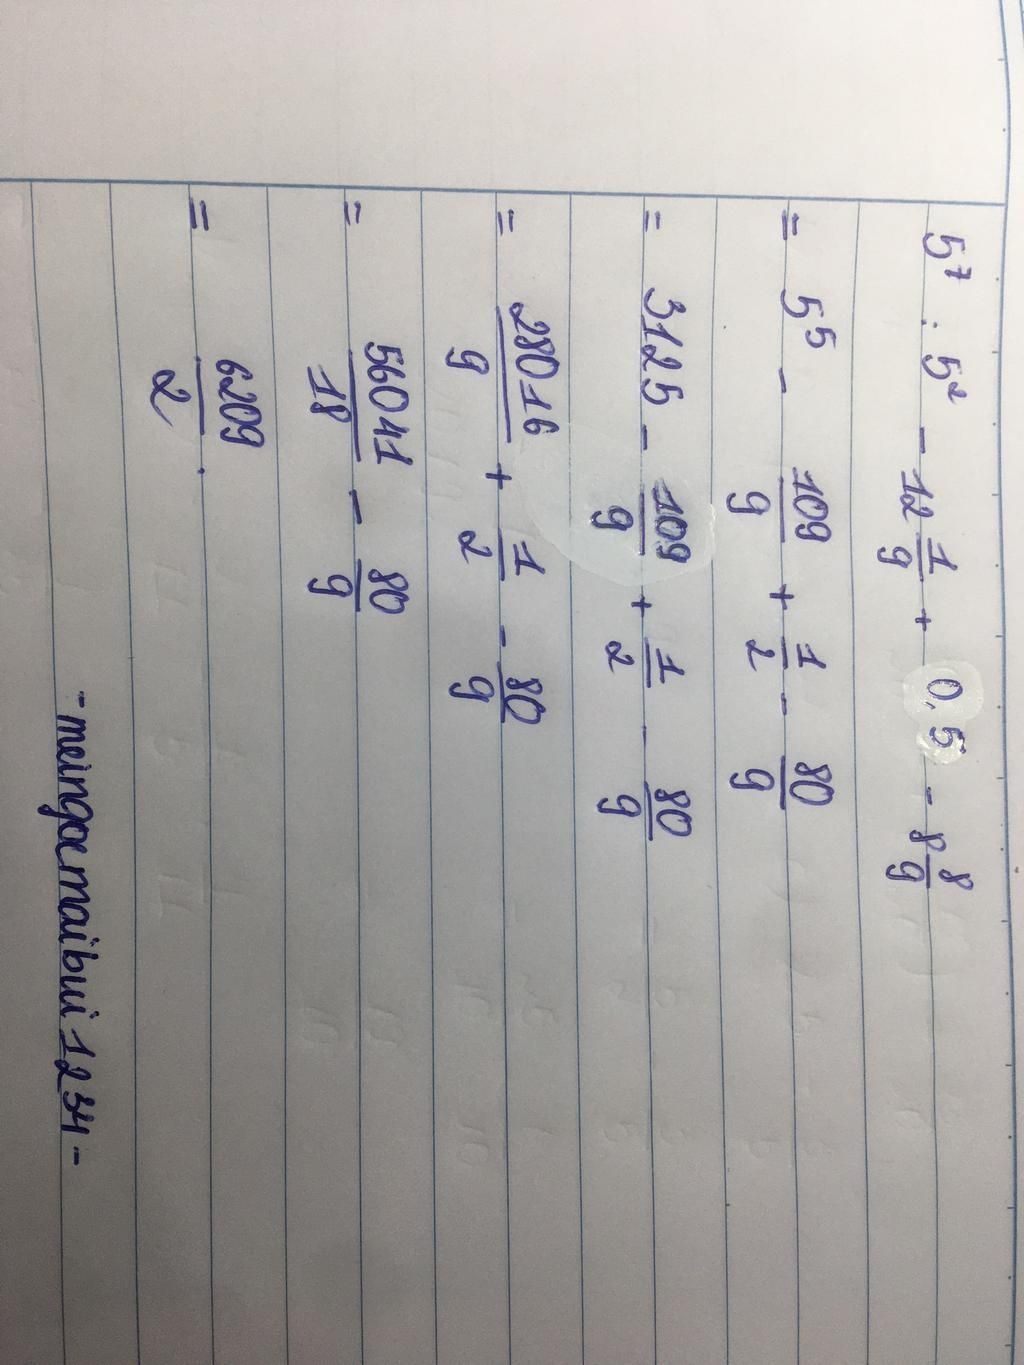 5⁷ : 5² - 12 1/9 + 0,5 - 8 8/9
= 5⁵ - 109/9 + 1/2 - 80/9
= 3125 - 109/9 + 1/2 - 80/9
= 28016/9 + 1/2 - 80/9
= 56041/18 - 80/9
= 6209/2.
- meingocmaibui1234 -